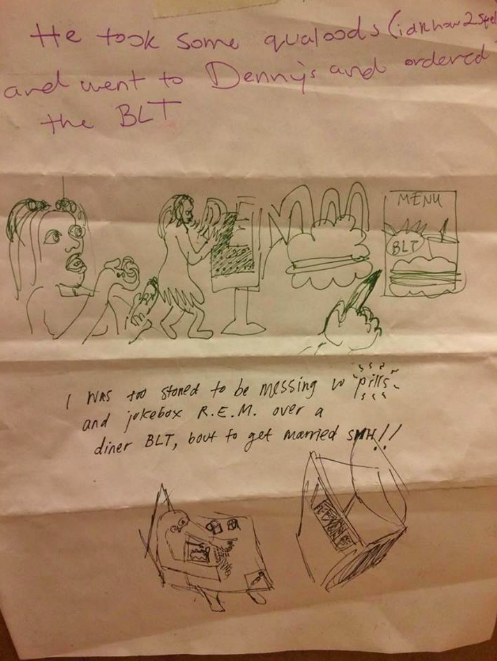 He took some qualoods (idk how 2 spell
and went to Denny's and ordered
the BLT
MENU
BLT
I was too stoned to be messing w pills
and jokebox R.E.M. over a
diner BLT, bout to get married SMH!!